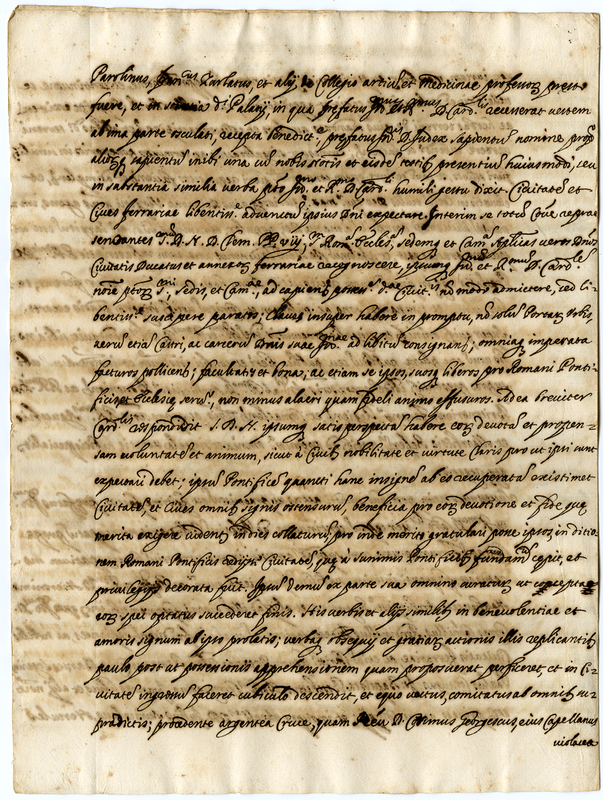 Parolinus, et alij de Collegio artium et medicinae professores presto
fuere, et in d. Palatij, in qua prefatus D. Card. recesserat vestem
ab ima parte osculati, recepta benedict. prefatus D. Judex sapientum nomine prop.
aliorumq sapientum inibi una cum nobis notis et eisdem testib presentium huiusmodi, seu
in substantia similia verba pto Ill. et R. D. Card. humili gestu dixit Civitatem et
Cives ferrariae libentis. adventum ipsius Dni expectare. Interim se totum Coe repræ
sentantes S. D. N. D. Clem. PP. viij, Rom. Eccles., sedemq et Cam. Apllicas veros Dnos
Civitatis Ducatus et annexorum ferrariae recognoscere, ipsumq Ill. et R. D. Card.
noie ptor, sedis, et Cam., ad capiend possess. d. Civit. nd modo admittere, sed li-
bentiss. suscipere paratos; Claves insuper habere in promptu, nd solum Portarum Urbis,
verum etiam Castri, ac carcerum D. suae Ill. ad libitum consignand; omniaq imperata
facturos pollicent; facultates et bona, ac etiam se ipsos, suosq liberos pro Romani Ponti-
ficis et Ecclesiae serv., non minus alacri quam fideli animo effusuros. Ad ea breviter
Card. respondidit S. D. N. ipsumq satis perspectam habere eorum devotam et propen-
sam voluntatem et animum, sicut à Civib nobilitate et virtute claris pro ut ipsi sunt
expectari debet; ipsum Pontificem quanti hanc insignem ab eo recuperatam existimet
Civitatem, et Cives omnib signis ostensurum, beneficia pro eorum devotione et fide quae
merita exigere videntur indies collecturum, pro inde merito gratulari posse ipsos in ditio-
nem Romani Pontificis redijsse Civitatem quae a summis Pontificib fundamenta cepit, et
privilegijs decorata fuit. Ipsum demum ex parte sua omnino curaturum ut conceptae
eorum spei optatus succederet finis. His verbis et alijs similib in benevolentiae et
amoris signum ab ipso prolatis; verbaq obsequij et gratiarum actionis illis replicantib
paulo post ut possessionis apprehensionem quam proposuerat perficeret, et in Ci-
vitatem ingressum faceret cubiculo descendit, et equo vectus, comitatus ab omnib su-
pradictis; procedente argentea Cruce, quam Reu. D. Cosimus Georgescus, eius Capellanus
violacea